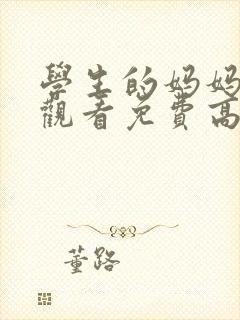 學生的妈妈
觀看免費高
董路